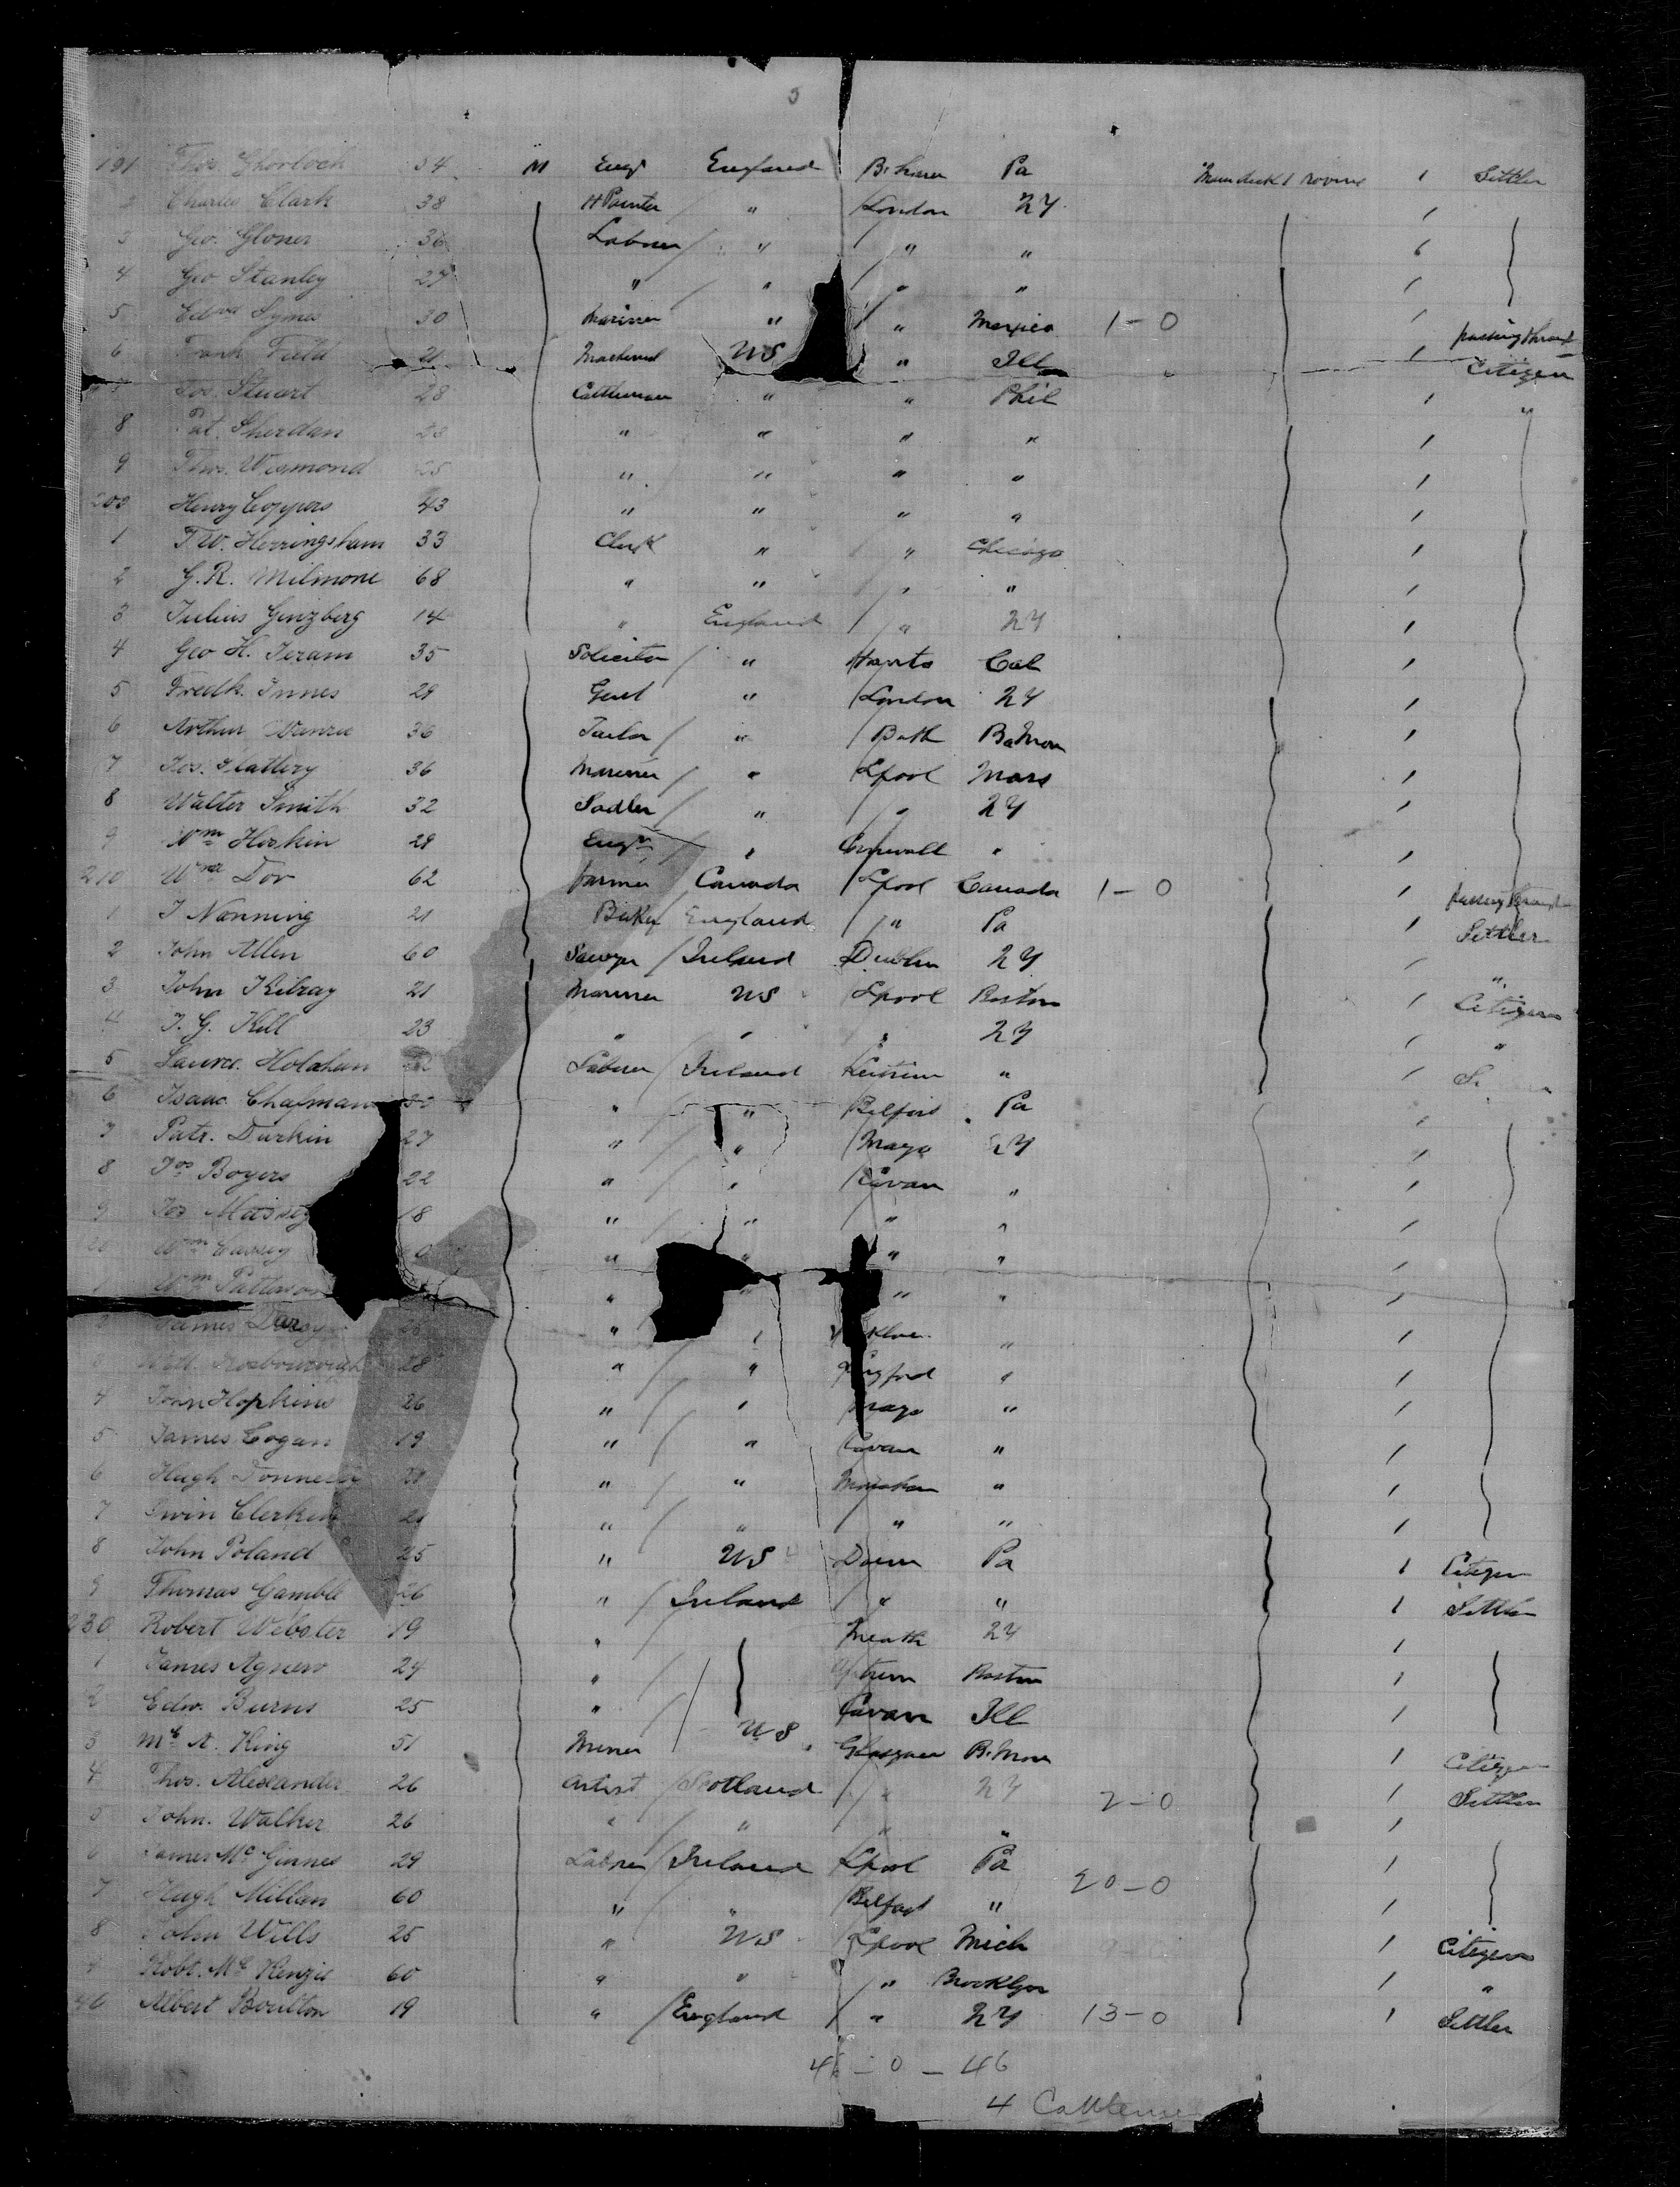 5
191 Thos. Ghorloch 34 M Engr England Pa 1 Settler
2 Charles Clark 38 H Painter / " / London NY 1
3 Geo. Gloner 36 Labourer / " / " "
4 Geo Stanley 27 " / " / " " 1
5 Edwd Symes 30 Mariner " " Mexico 1 - 0 1 passing through
6 Frank Field 21 US " Ill 1 Citizen
Jos. Stuart 28 Cattleman " " Phil 1 "
8 Pat. Sherdan " " " " 1
9 Thos. Wesmond 25 " " " " 1
200 Henry Coppers 43 " " " " 1
1 T.W. Herringsham 33 Clerk " " Chicago 1
2 G.R. Milmone 68 " " / " " 1
3 Julius Ginzberg 14 " England / " NY 1
4 Geo H. Jeram 35 Solicitor / " Hants Cal 1
5 Fredk. Innes 29 Gent " / London NY 1
6 Arthur 36 Tailor / " / Bath 1
7 Jos. Flattery 36 Mariner / " Lpool Mass 1
8 Walter Smith 32 Sadler / " / " NY 1
9 Wm Hoskin 29 Engr / " Cornwall " 1
210 Wm Dov 62 farmer / Canada / Lpool Canada 1 - 0 1 passing through
1 J Nanning 21 Baker England / " Pa 1 Settler
2 John Allen 60 Sawyer / Ireland Dublin NY 1 "
3 John Kilray 21 Mariner US Lpool Boston 1 Citizen
4 J. G. Kell 23 " " " NY 1 "
5 Laurce. Holahan Labourer / Ireland " 1
6 Isaac Chapman " / " / Belfast Pa 1
7 Patr. Durkin 27 " / " / Mayo NY 1
8 Jos Boyers 22 " / " / Cavan " 1
9 Jos Massey 18 " / " / " " 1
Wm Cassey " " " " 1
Wm Patterson " " " " 1
James Darcy 28 " " " 1
28 " / " Longford " 1
4 John Hopkins 26 " / " / Mayo " 1
5 James Cogan 19 " / " / Cavan " 1
6 Hugh Donnelly 21 " / " / Monahan " 1
7 Owin Clerken " / " / " " 1
8 John Poland 25 " US Down Pa 1 Citizen
9 Thomas Gamble 26 " / Ireland / " " 1 Settler
230 Robert Webster 19 " / Meath NY 1
1 James Agnew 24 " / Antrim Boston 1
2 Edw. Burns 25 " / Cavan Ill 1
3 A. King 51 Miner US Glasgow 1 Citizen
4 Thos. Alexander 26 Artist / Scotland / " NY 2 - 0 1 Settler
5 John. Walker 26 " / " " " 1
6 James Mc Ginnes 29 Labourer / Ireland Lpool Pa 1
7 Hugh Millan 60 " / " / Belfast " 20 - 0 1
8 John Wills 25 " US / Lpool Mich 1 Citizen
9 Robt. Mc Kenzie 60 " " / " Brooklyn 1 "
40 Albert Boulton 19 " / England / " NY 13 - 0 1 Settler
46 - 0 - 46
4 Cattlemen